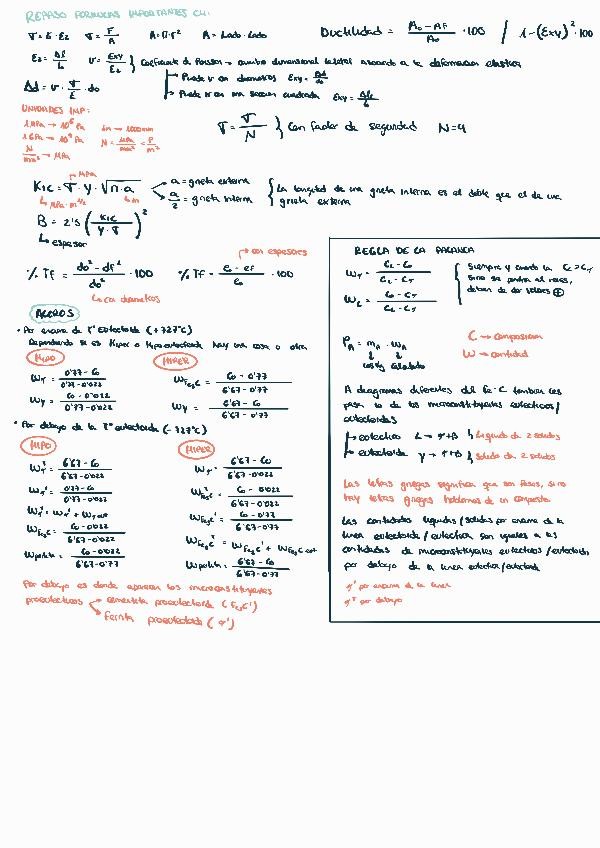 REPASO FÓRMULAS IMPORTANTES C4:
σ = E · εz σ = F/A A = π·r² A = Lado · Lado Ductilidad = (A₀ - AF)/A₀ · 100 / 1-(εxy)² · 100
εz = Δl/l₀ ν = εxy/εz } Coeficiente de Poisson → cambio dimensional lateral asociado a la deformación elástica
↳ Puede ir en diámetros εxy = Δd/d₀
Δd = ν · σ/E · d₀
↳ Puede ir en una sección cuadrada
UNIDADES IMP:
1 MPa → 10⁶ Pa 1m → 1000mm
1 GPa → 10⁹ Pa N = MPa/mm² = P/m²
N/mm² → MPa
σ = σ/N } Con factor de seguridad N=4
↱ MPa
KIC = σ · y · √π·a
↳ MPa · m^1/2 ↳ m
a = grieta externa
a/2 = grieta interna
{ La longitud de una grieta interna es el doble que el de una grieta externa
B = 2'5 (KIC / y·σ)²
↳ espesor
↱ con espesores
% Tf = (d₀² - df²)/d₀² · 100 % Tf = (e₀ - ef)/e₀ · 100
↳ con diámetros
ACEROS
• Por encima de Tª eutectoide (+727°C)
Dependiendo si es Hiper o Hipoeutectoide hay una cosa u otra
HIPO HIPER
Wγ = (0'77 - C₀)/(0'77 - 0'022) WFe₃C = (C₀ - 0'77)/(6'67 - 0'77)
Wγ = (C₀ - 0'022)/(0'77 - 0'022) Wγ = (6'67 - C₀)/(6'67 - 0'77)
• Por debajo de la Tª eutectoide (-727°C)
HIPO HIPER
(6'67 - C₀)/(6'67 - 0'022) (6'67 - C₀)/(6'67 - 0'022)
(0'77 - C₀)/(0'77 - 0'022) (C₀ - 0'022)/(6'67 - 0'022)
WFe₃C' = (C₀ - 0'77)/(6'67 - 0'77)
WFe₃C = (C₀ - 0'022)/(6'67 - 0'022) WFe₃C = WFe₃C' + WFe₃C eut
Wperlita = (C₀ - 0'022)/(0'77 - 0'022) Wperlita = (6'67 - C₀)/(6'67 - 0'77)
Por debajo es donde aparecen los microconstituyentes
proeutécticos → cementita proeutectoide (Fe₃C')
→ ferrita proeutectoide (α')
REGLA DE LA PALANCA
(CL - C₀)/(CL - Cσ)
WL = (C₀ - Cσ)/(CL - Cσ)
deben de dar valores ⊕
C → composición
W → cantidad
A diagramas diferentes del Fe-C también les
pasa lo de los microconstituyentes eutécticos/
eutectoides
↳ eutéctico L → α+β } Líquido de 2 sólidos
↳ eutectoide γ → α+β } Sólido de 2 sólidos
Las letras griegas significa que son fases, si no
hay letras griegas hablamos de un compuesto
Las cantidades líquidas/sólidas por encima de la
línea eutectoide/eutéctica son iguales a las
cantidades de microconstituyentes eutécticos/eutectoides
por debajo de la línea eutéctica/eutectoide
α' por encima de la línea
por debajo